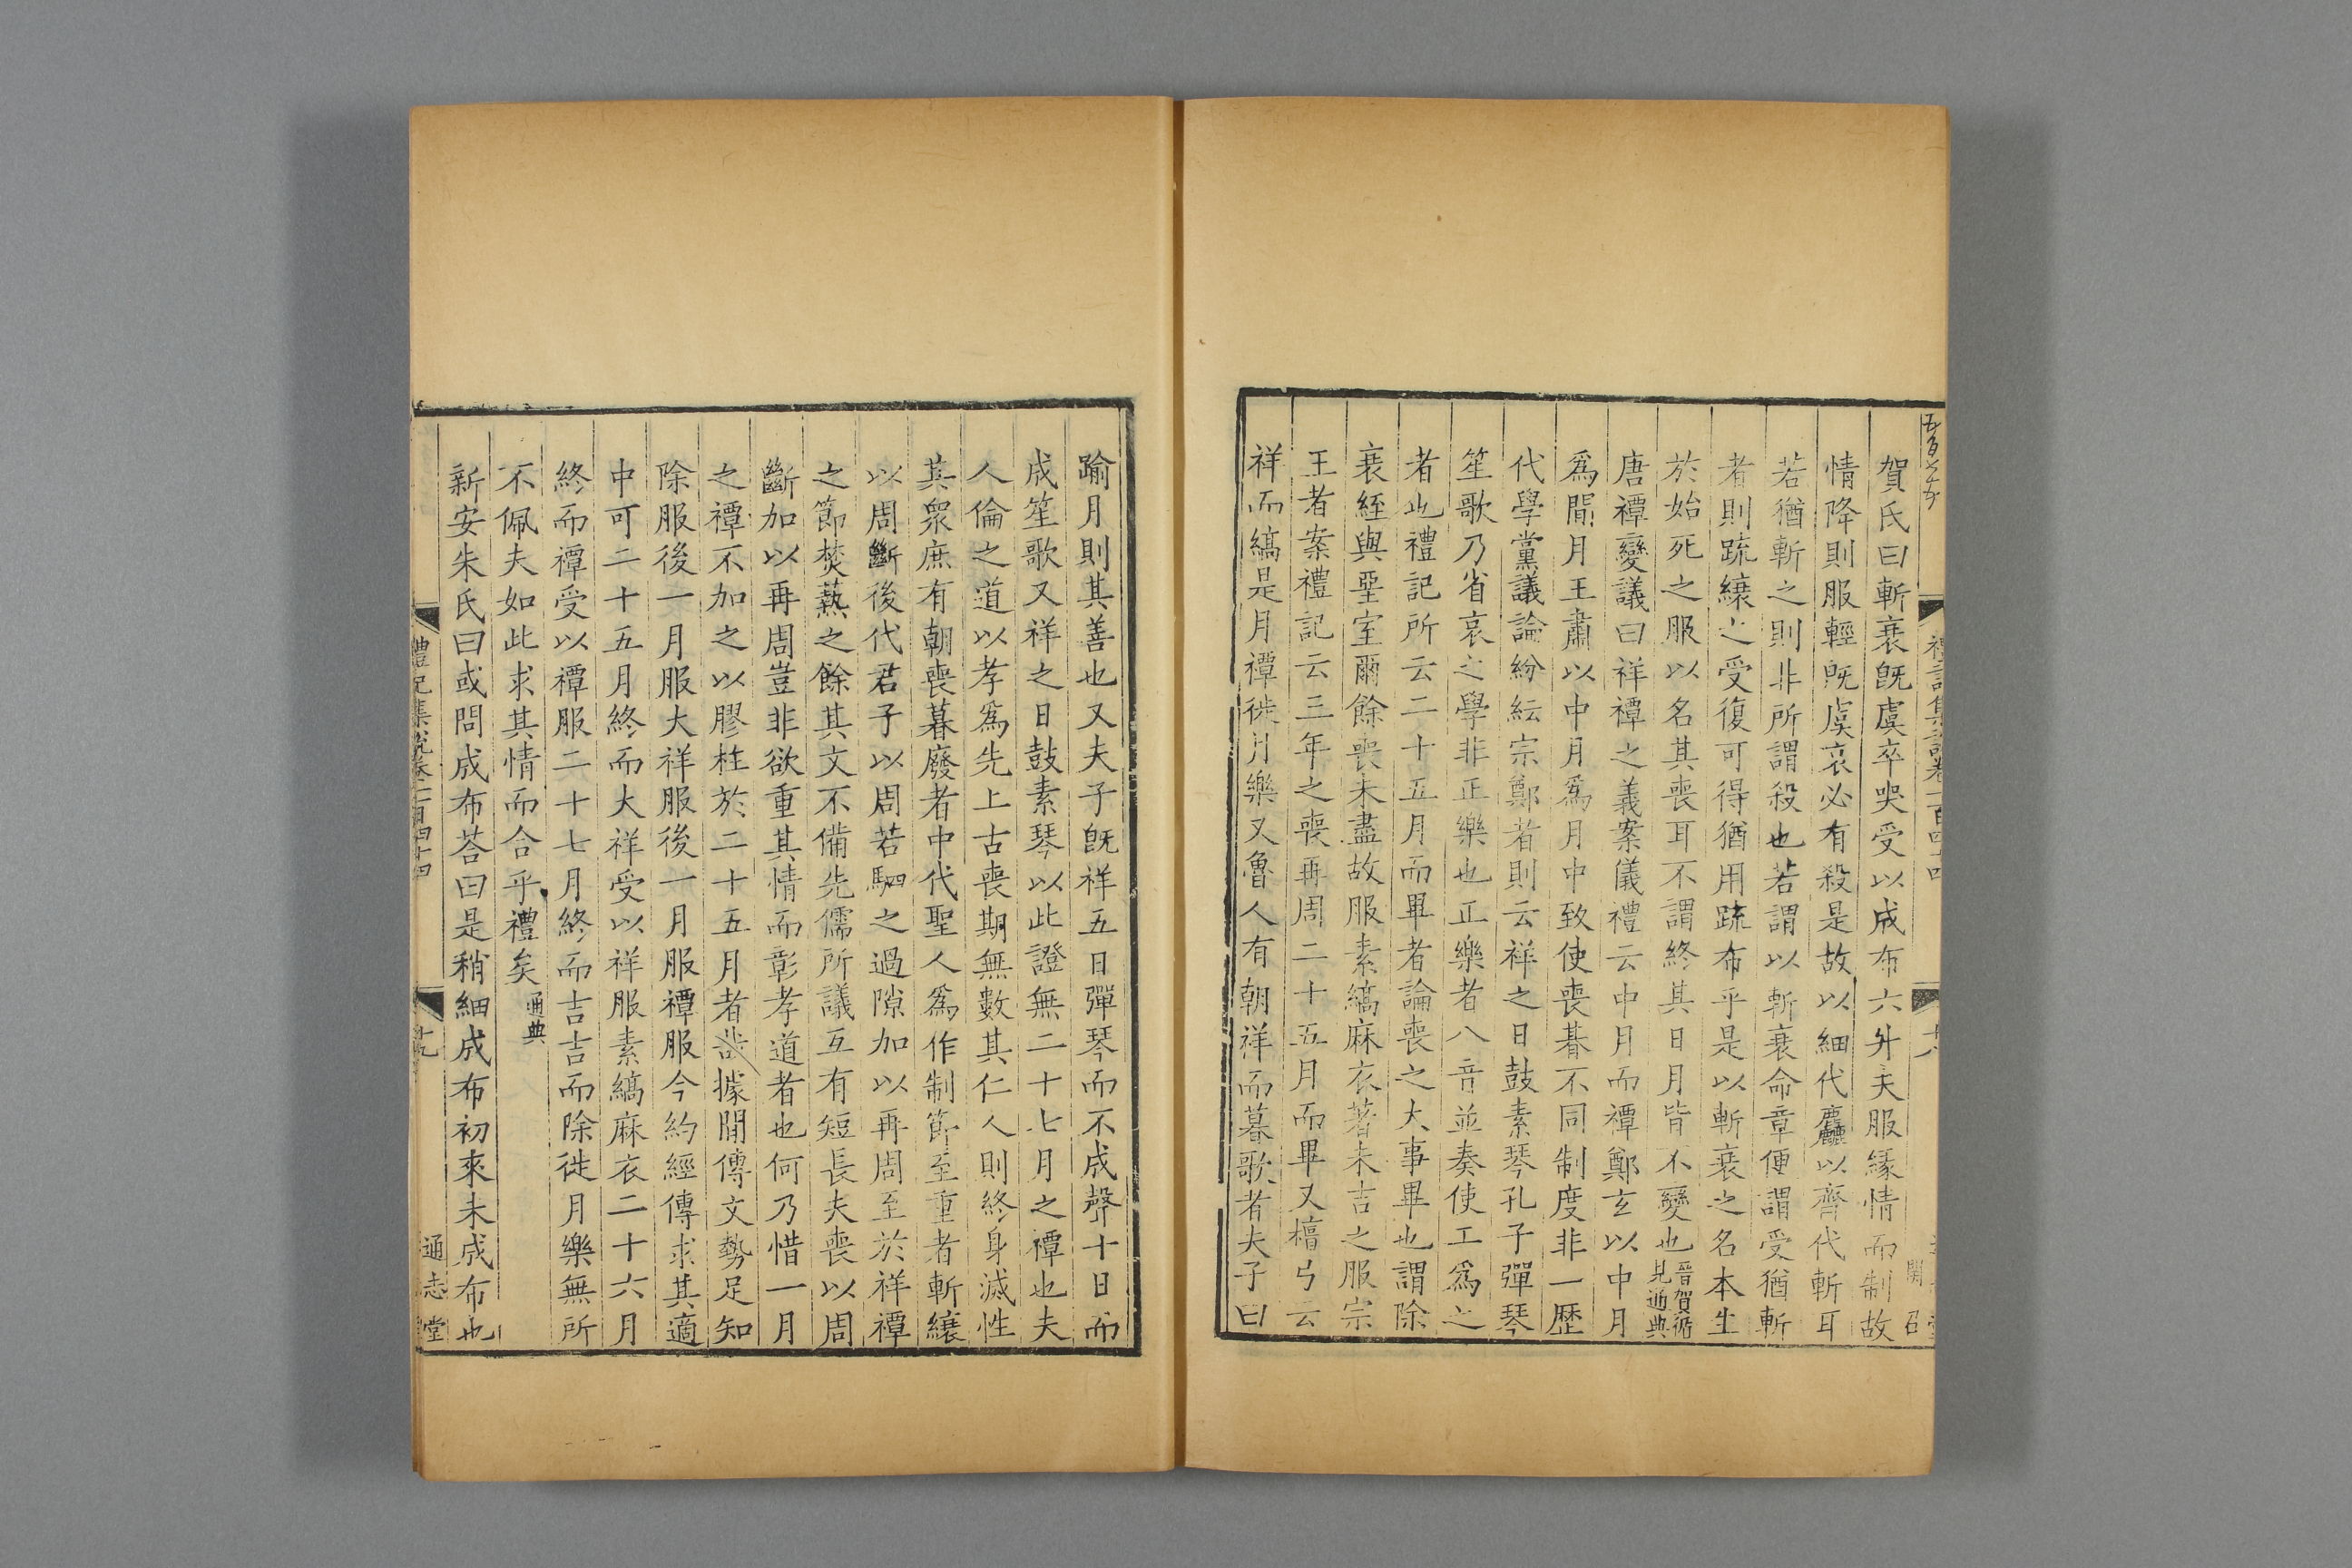 賀氏曰斬衰旣虞卒哭受以成布六升夫服緣情而制故
情降則服輕旣虞哀必有殺是故以細代麤以齊代斬耳
若猶斬之則非所謂殺也若謂以斬衰命章便謂受猶斬
者則疏縗之受復可得猶用疏布乎是以斬衰之名本生
於始死之服以名其喪耳不謂終其日月皆不變也晉賀循見通典
唐禫變議曰祥禫之義案儀禮云中月而禫鄭玄以中月
爲閒月王肅以中月爲月中致使喪朞不同制度非一歷
代學黨議論紛紜宗鄭者則云祥之日鼓素琴孔子彈琴
笙歌乃省哀之學非正樂也正樂者八音並奏使工爲之
者也禮記所云二十五月而畢者論喪之大事畢也謂除
衰絰與堊室爾餘喪未盡故服素縞麻衣著未吉之服宗
王者案禮記云三年之喪再周二十五月而畢又檀弓云
祥而縞是月禫徙月樂又魯人有朝祥而暮歌者夫子曰
踰月則其善也又夫子旣祥五日彈琴而不成聲十日而
成笙歌又祥之日鼓素琴以此證無二十七月之禫也夫
人倫之道以孝爲先上古喪期無數其仁人則終身滅性
其衆庶有朝喪暮廢者中代聖人爲作制節至重者斬縗
以周斷後代君子以周若駟之過隙加以再周至於祥禫
之節焚爇之餘其文不備先儒所議互有短長夫喪以周
斷加以再周豈非欲重其情而彰孝道者也何乃惜一月
之禫不加之以膠柱於二十五月者哉據閒傳文勢足知
除服後一月服大祥服後一月服禫服今約經傳求其適
中可二十五月終而大祥受以祥服素縞麻衣二十六月
終而禫受以禫服二十七月終而吉吉而除徙月樂無所
不佩夫如此求其情而合乎禮矣通典
新安朱氏曰或問成布荅曰是稍細成布初來未成布也
禮記集說卷一百四十四
十九
通志堂